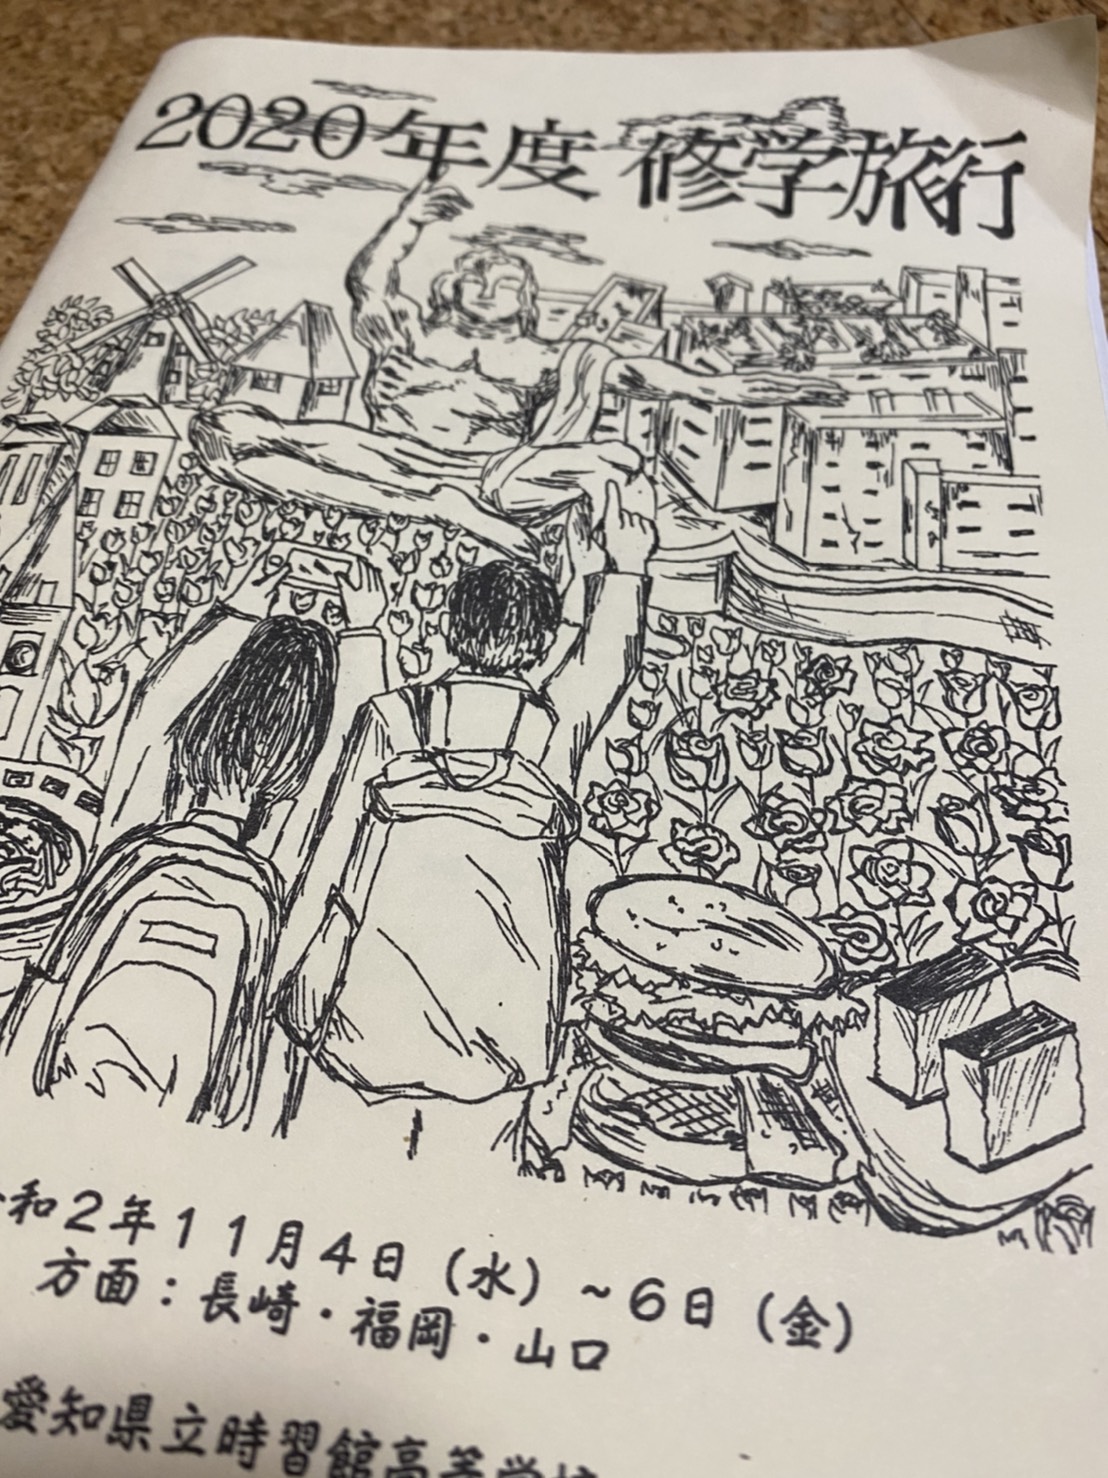 2020年度 修学旅行
和2年11月4日(水)~6日(金)
方面:長崎・福岡・山口
愛知県立時習館高等学校